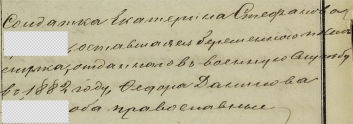 Солдатка Екатерина Стефанова
оставшаяся беременною после
мужа, отданнаго въ военную службу
въ 1882 году, Ѳедора Данилова
оба православные